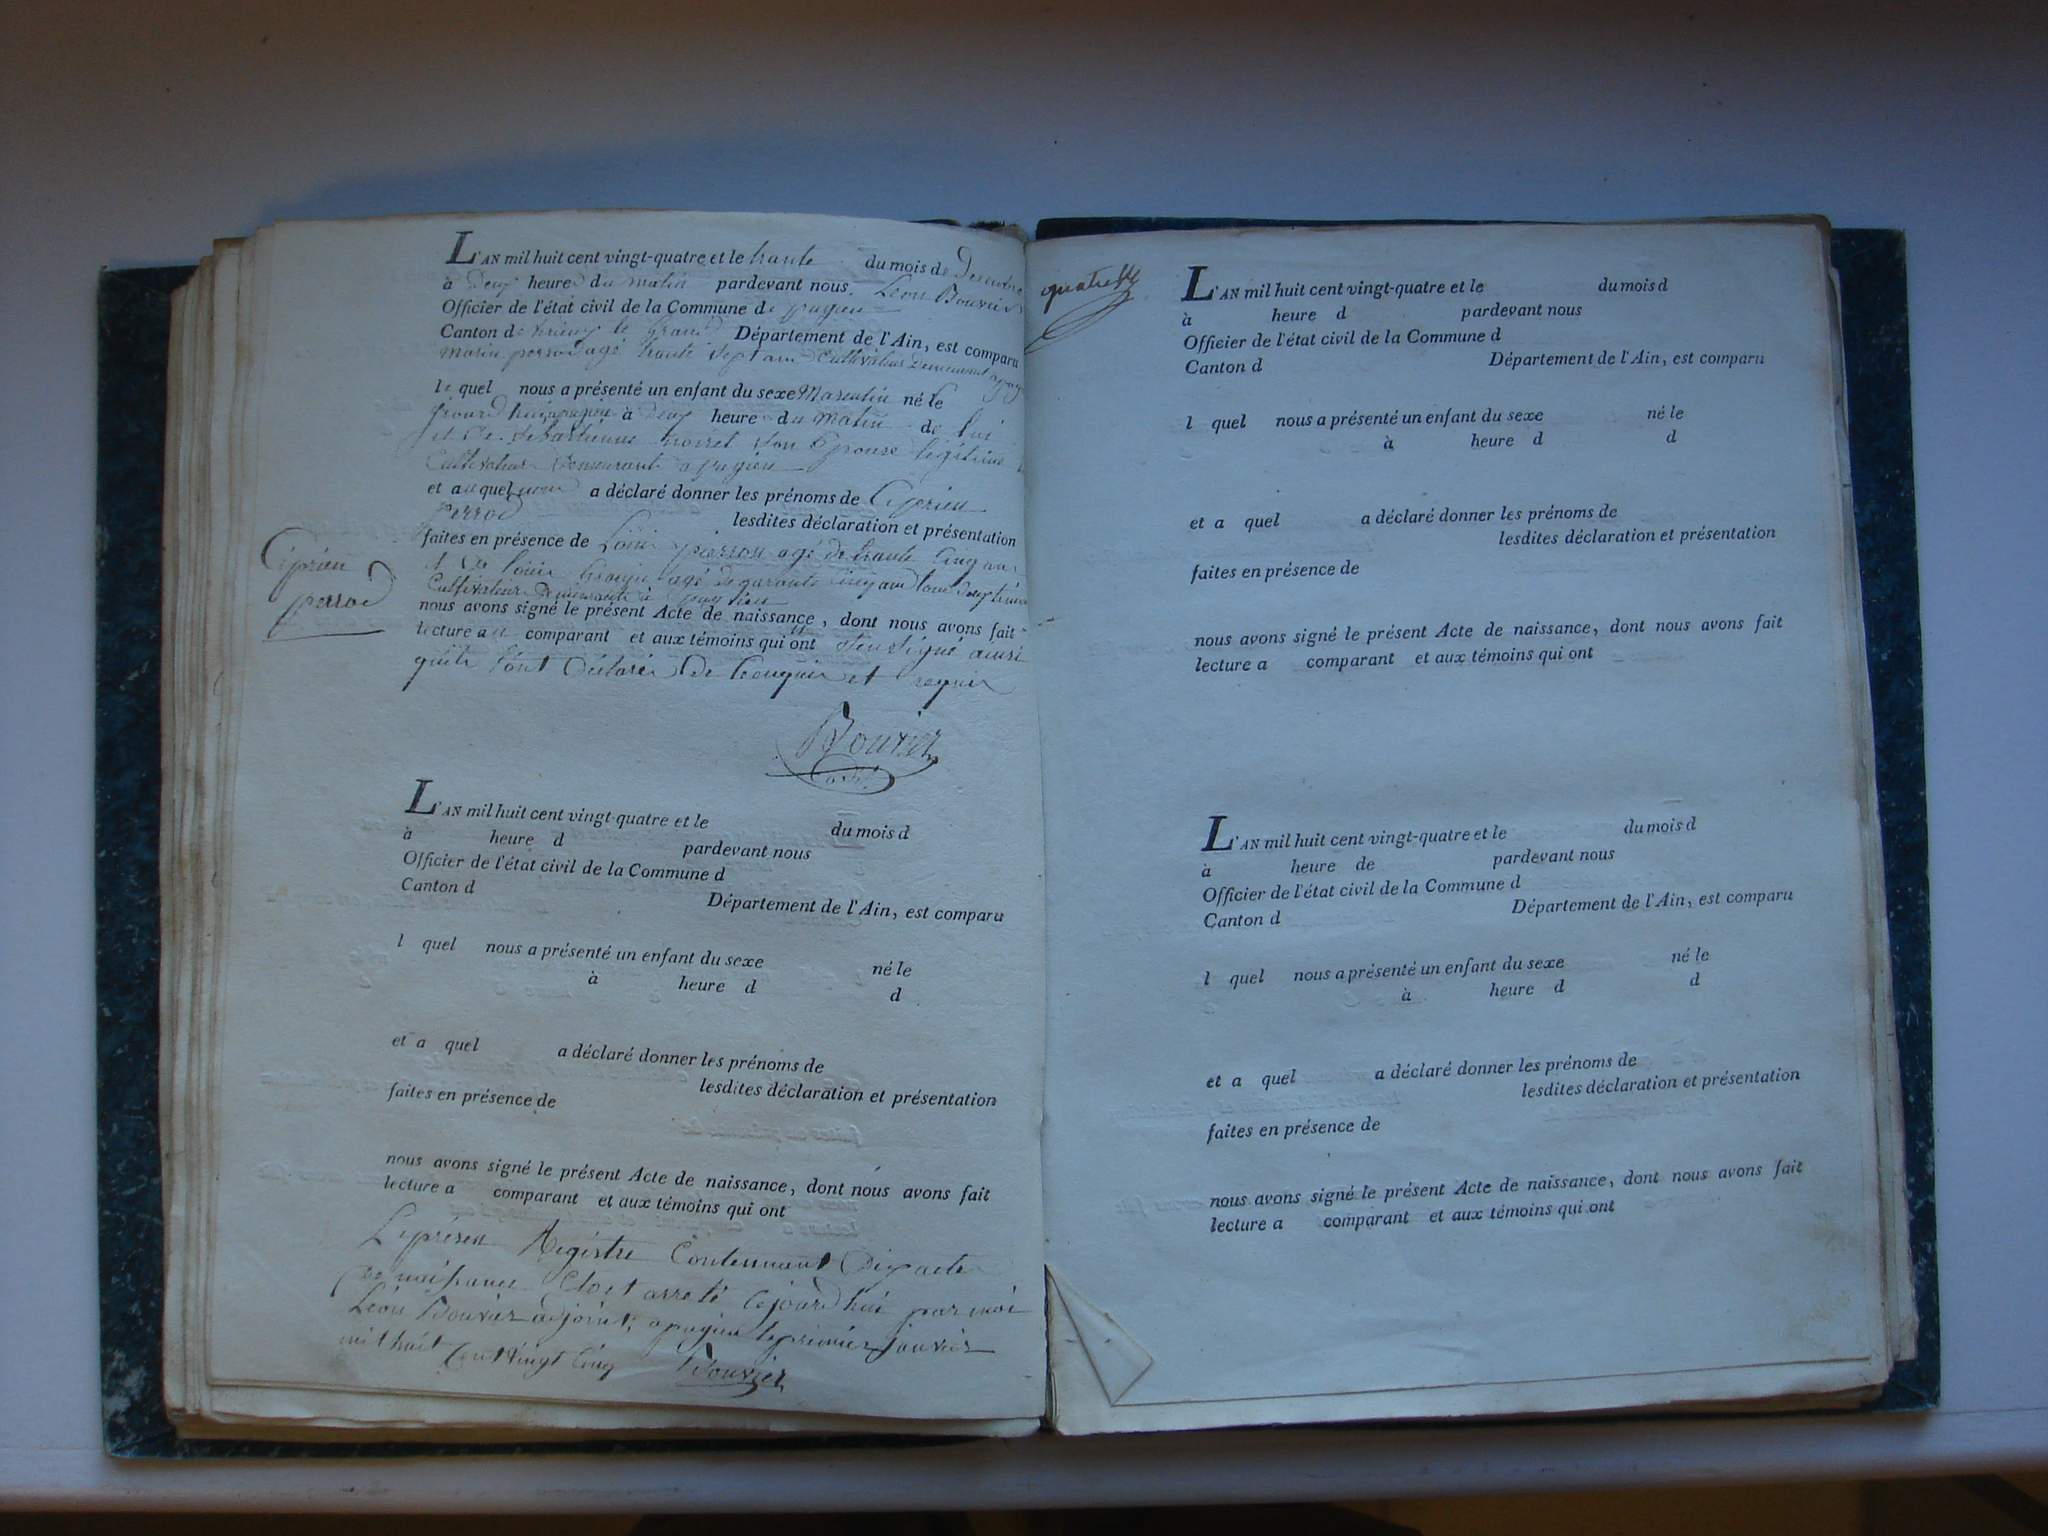 L'AN mil huit cent vingt-quatre et le trante du mois de Decembre
à deux heures du matin pardevant nous Léon Bouvier
Officier de l'état civil de la Commune de pugieu
Canton de le Grand Département de l'Ain, est comparu
perrod agé trante sept ans Cultivateur Demeurant a
le quel nous a présenté un enfant du sexe Masculin né le
à deux heure du matin de lui
et de son Epouse légitime
Cultivateur Demeurant a pugieu
et au quel a déclaré donner les prénoms de Ciprien
perrod lesdites déclaration et présentation
faites en présence de Louis agé de trante Cinq ans
Ciprien
et de louis agé de quarante cinq ans tous deux
perrod
Cultivateur Demeurant à
nous avons signé le présent Acte de naissance, dont nous avons fait
lecture au comparant et aux témoins qui ont signé ainsi
qu'ils l'ont déclaré de et requis
Bouvier
L'AN mil huit cent vingt-quatre et le du mois d
à heure d pardevant nous
Officier de l'état civil de la Commune d
Canton d Département de l'Ain, est comparu
l quel nous a présenté un enfant du sexe né le
à heure d d
et a quel a déclaré donner les prénoms de
lesdites déclaration et présentation
faites en présence de
nous avons signé le présent Acte de naissance, dont nous avons fait
lecture a comparant et aux témoins qui ont
Le présen Registre Contennant Dix acte
de naissance Clos et arreté Cejourd'hui par moi
Léon Bouvier adjoint, a pugieu le premier Janvier
mil huit Cent vingt Cinq Bouvier
quatre
L'AN mil huit cent vingt-quatre et le du mois d
à heure d pardevant nous
Officier de l'état civil de la Commune d
Canton d Département de l'Ain, est comparu
l quel nous a présenté un enfant du sexe né le
à heure d d
et a quel a déclaré donner les prénoms de
lesdites déclaration et présentation
faites en présence de
nous avons signé le présent Acte de naissance, dont nous avons fait
lecture a comparant et aux témoins qui ont
L'AN mil huit cent vingt-quatre et le du mois d
à heure de pardevant nous
Officier de l'état civil de la Commune d
Canton d Département de l'Ain, est comparu
l quel nous a présenté un enfant du sexe né le
à heure d d
et a quel a déclaré donner les prénoms de
lesdites déclaration et présentation
faites en présence de
nous avons signé le présent Acte de naissance, dont nous avons fait
lecture a comparant et aux témoins qui ont